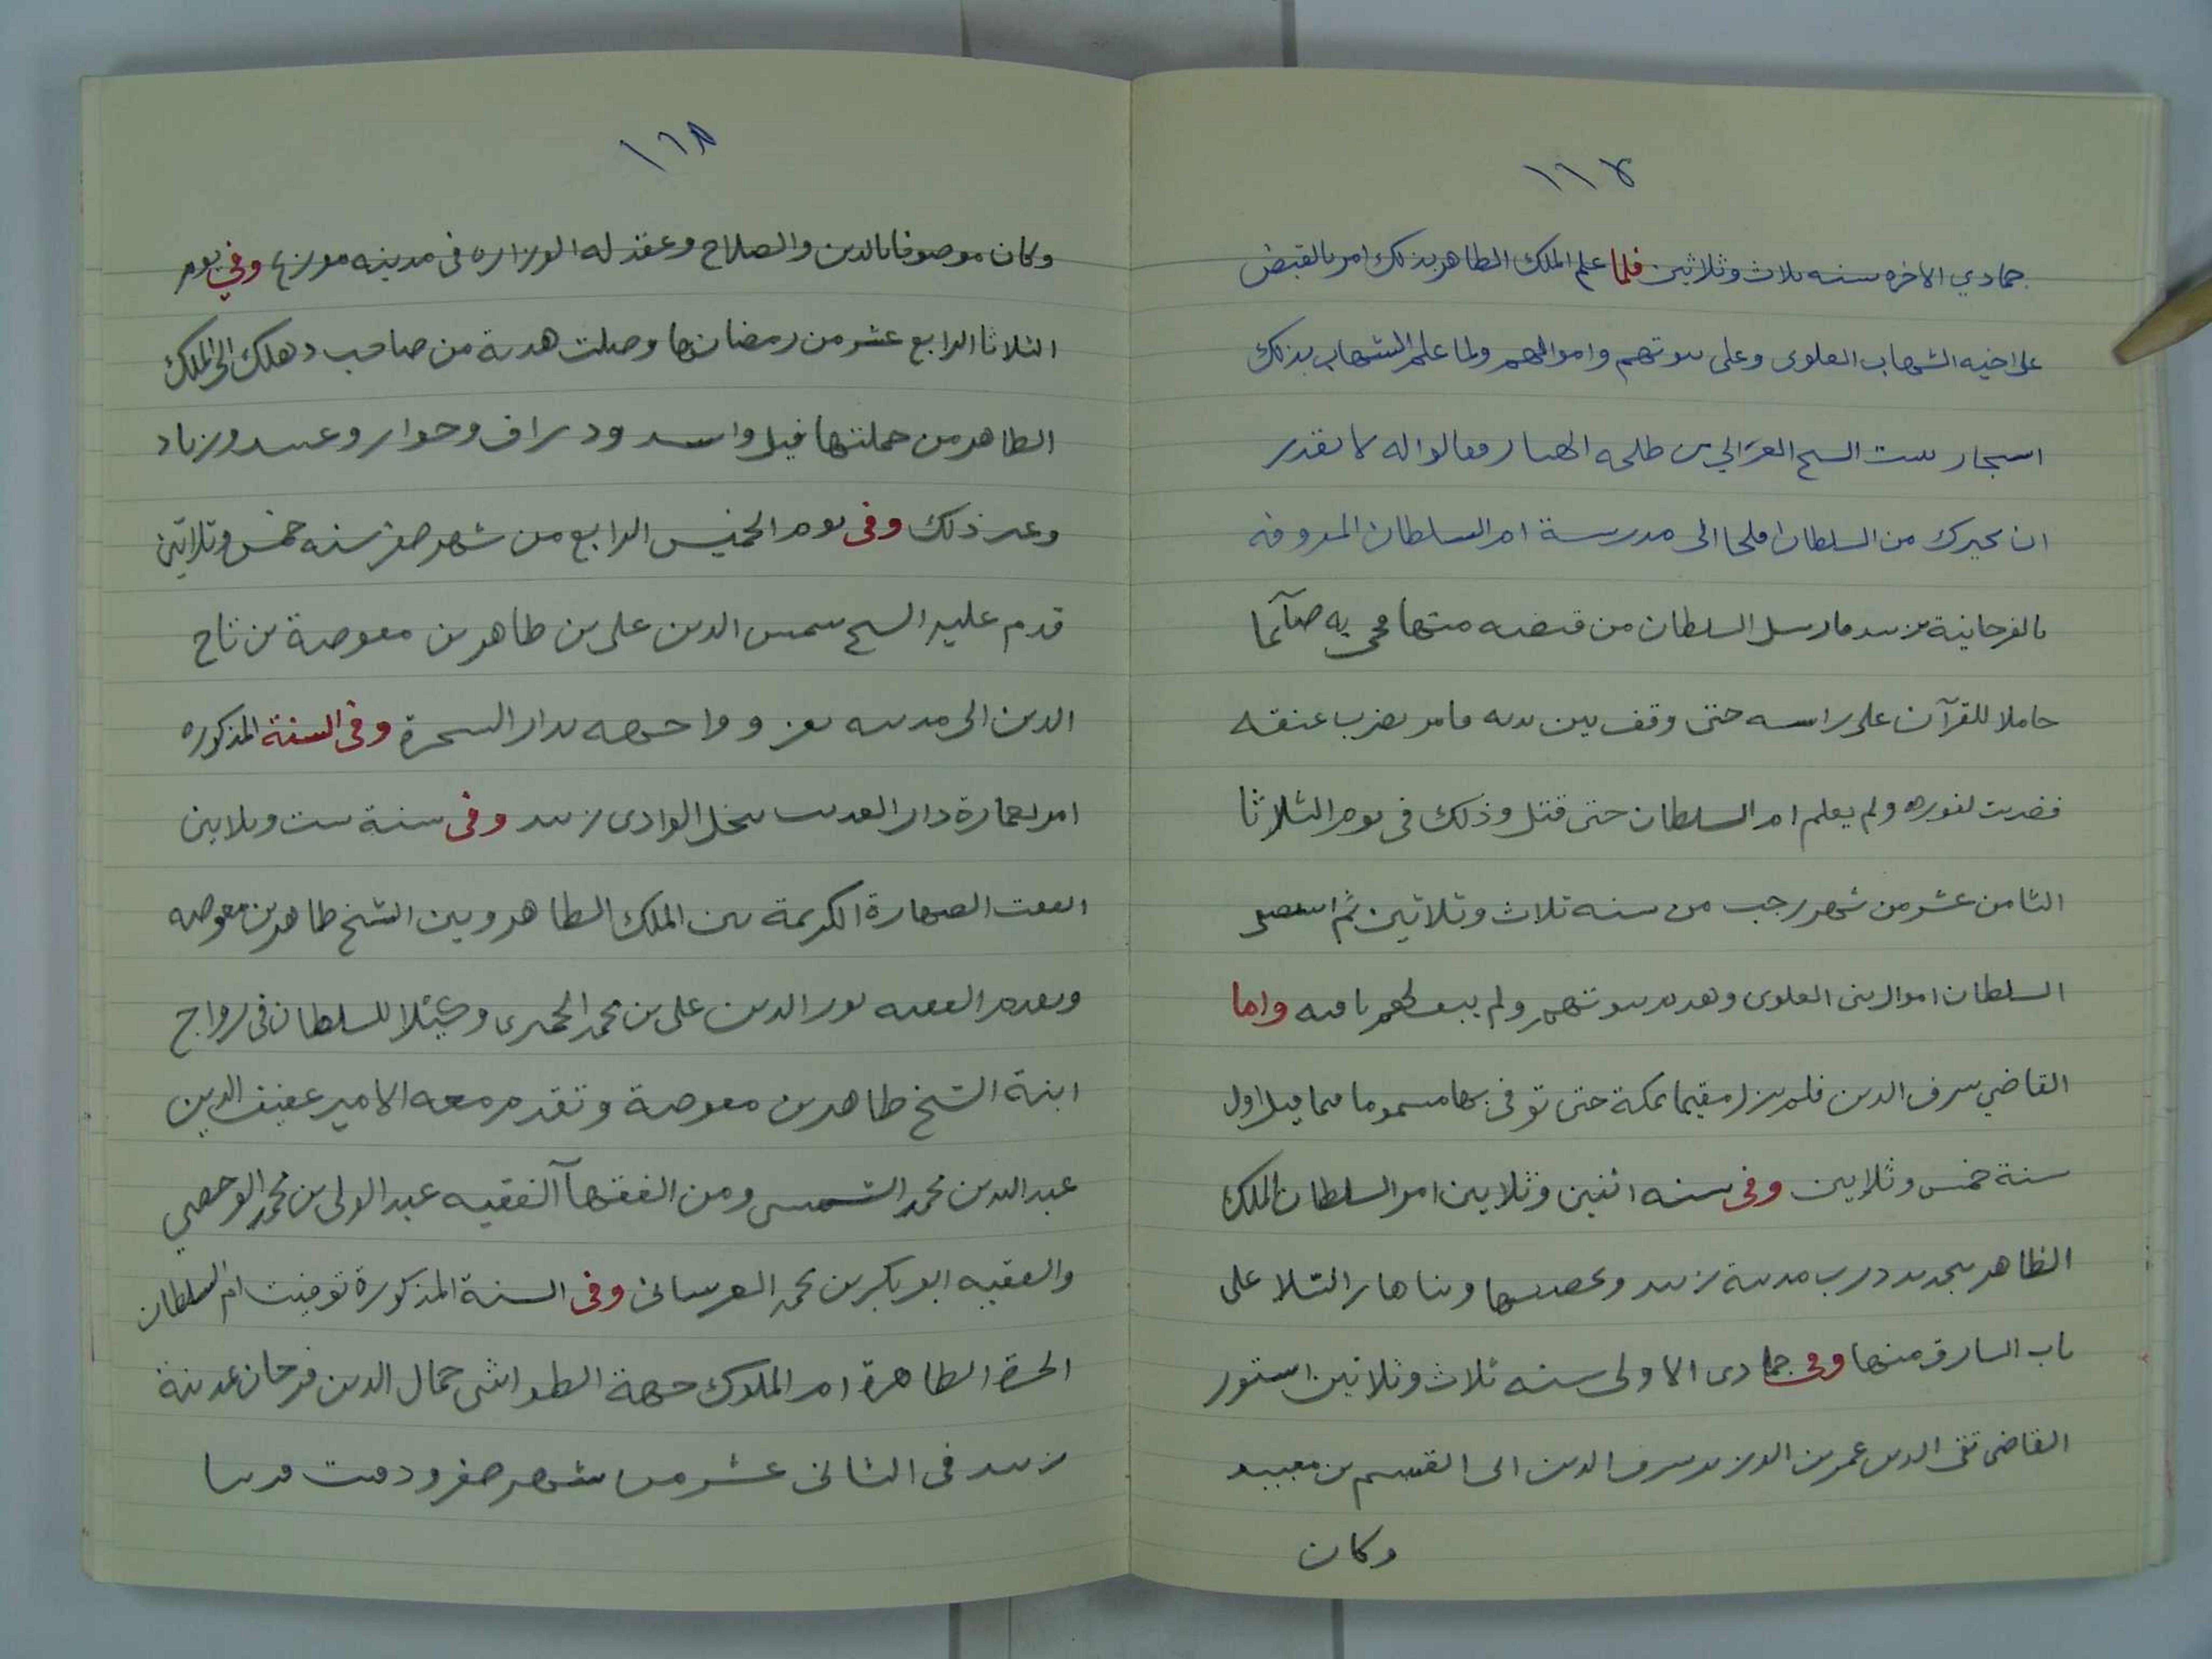 ١١٧
جمادي الاخره سنه ثلاث وثلاثين فلما علم الملك الظاهر بذلك امر بالقبض
على اخيه الشهاب العلوى وعلى بيوتهم واموالهم ولما علم الشهاب بذلك
استجار ببيت الشيخ الغزالي بن طلحه الهتار فقالوا له لا نقدر
ان نجيرك من السلطان فلجا الى مدرسة ام السلطان المعروفه
بالفرحانية بزبيد فارسل السلطان من قبضه منها فجى به صآئما
حاملا للقرآن على راسه حتى وقف بين يديه فامر بضرب عنقه
فضربت لفوره ولم يعلم ام السلطان حتى قتل وذلك فى يوم الثلاثا
الثامن عشر من شهر رجب من سنه ثلاث وثلاثين ثم استصفى
السلطان اموال بنى العلوى وهدم بيوتهم ولم يبق لهم باقيه واما
القاضي شرف الدين فلم يزل مقيما بمكة حتى توفى بها مسموما فيما قيل اول
سنة خمس وثلاثين وفى سنه اثنين وثلاثين امر السلطان الملك
الظاهر بتجديد درب مدينة زبيد وتحصينها وبناها رالتلا على
باب الشارق منها وفى جمادى الاولى سنه ثلاث وثلاثين استوزر
القاضى تقى الدين عمر بن الوزير شرف الدين ابى القسم بن معيبد
وكان
١١٨
وكان موصوفا بالدين والصلاح وعقد له الوزاره فى مدينه موزع وفي يوم
الثلاثا الرابع عشر من رمضانها وصلت هدية من صاحب دهلك الى الملك
الظاهر من جملتها فيل واسد وزراف وجوار وعبيد وزباد
وغير ذلك وفى يوم الخميس الرابع من شهر صفر سنه خمس وثلاثين
قدم عليه الشيخ شمس الدين على بن طاهر بن معوضة بن تاج
الدين الى مدينه تعز وواجهه بدار الشجرة وفى السنة المذكوره
امر بعمارة دار العديب بنخل الوادى زبيد وفى سنة ست وثلاثين
اتفقت الصهارة الكريمة بين الملك الظاهر وبين الشيخ طاهر بن معوضه
وتقدم الفقيه نور الدين على بن محمد الحميرى وكيلا للسلطان فى زواج
ابنة الشيخ طاهر بن معوضة وتقدم معه الامير عفيف الدين
عبد الله بن محمد الشمسى ومن الفقهآ الفقيه عبد الولى بن محمد الوحصي
والفقيه ابو بكر بن محمد العرسانى وفى السنة المذكورة توفيت ام السلطان
الحرة الطاهرة ام الملوك جهة الطواشى جمال الدين فرحان بمدينة
زبيد فى الثانى عشر من شهر صفر ودفنت قريبا